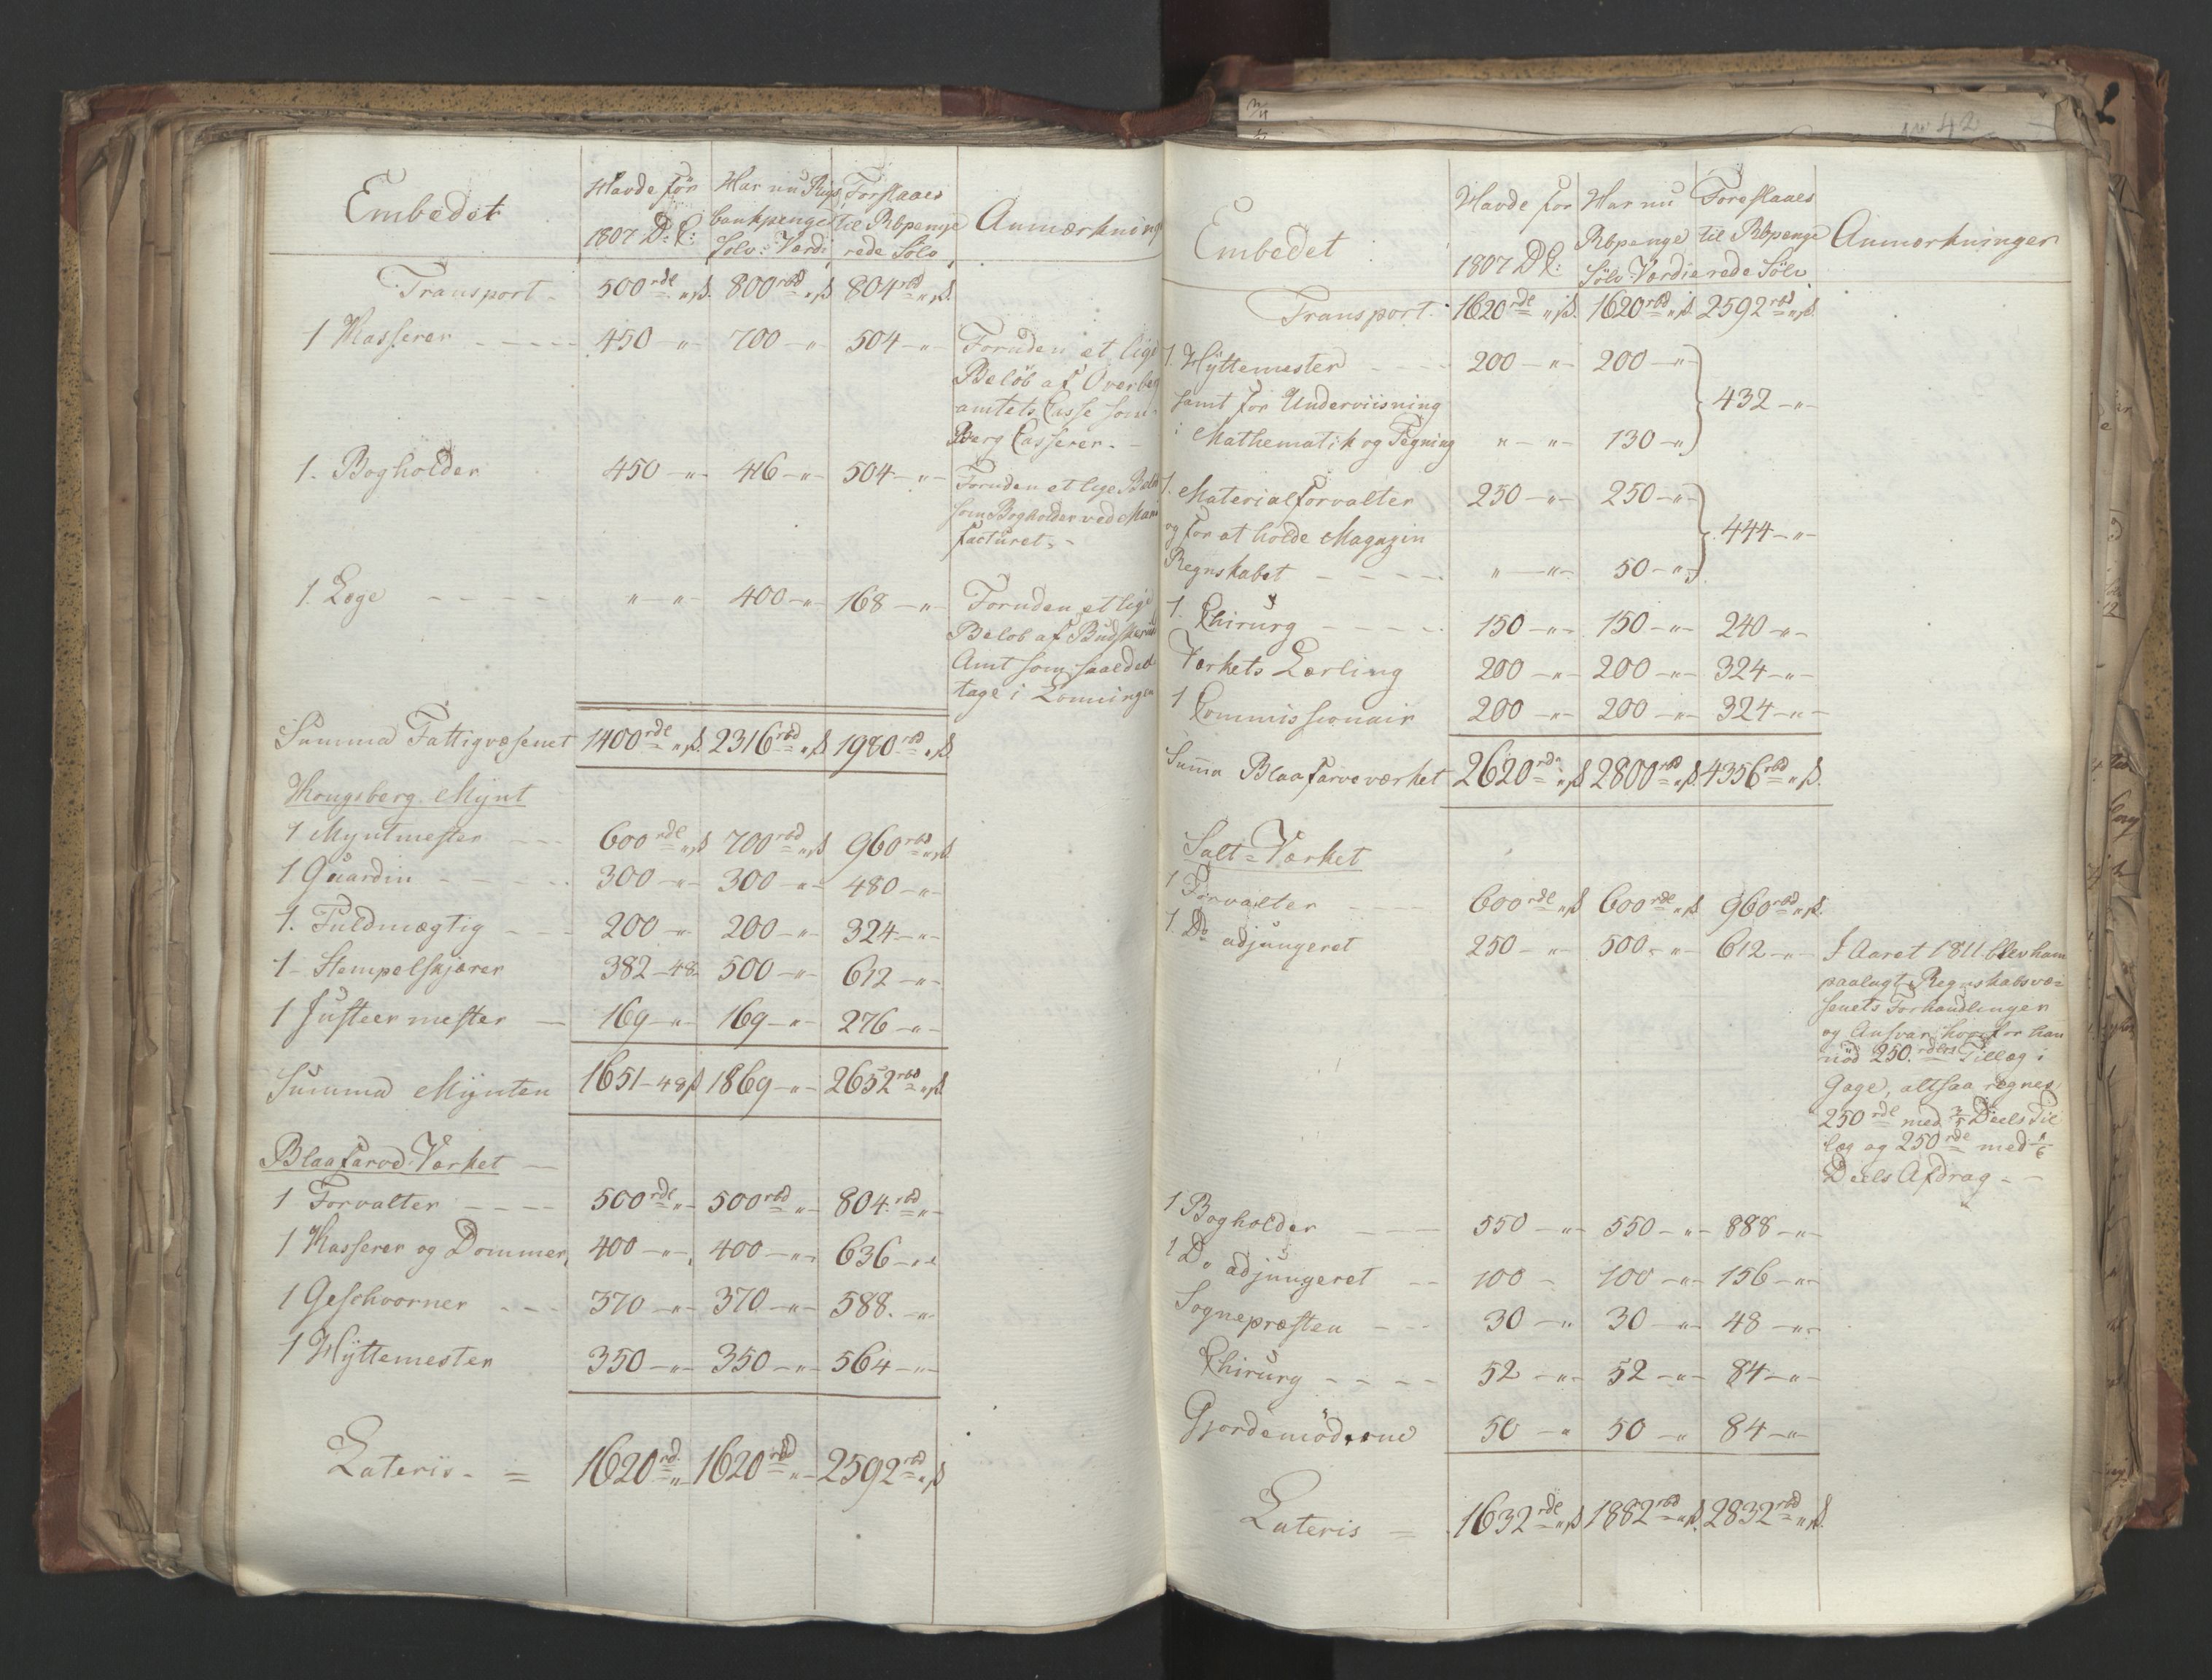 Embedet Havde før Har nu Rigs Forslaaes Anmærkning
1807 D: C: bankpenge til Rbpenge
Sølv: Værdi rede Sølv
Transport - 500 rdl „ ß. 800 rbd „ ß 804 rbd „ ß.
1 Kasserer - - - - 450 - „ - 700 - „ 504 - „ - Foruden et lige
Beløb af Overberg
amtets Casse som
Berg Casserer. -
1. Bogholder 450 - „ - 416 - „ - 504 - „ - Foruden et lige Beløb
som Bogholder ved Manu
facturet. -
1. Læge - - - - - „ - „ - 400 - „ - 168 - „ - Foruden et lige
Beløb af Budskeruds
Amt som saa
tage i Lønningen
Summa Fattigvæsenet 1400 rdl „ ß. 2316 rbd „ ß 1980 rbd „ ß
Kongsberg Mynt
1 Myntmester - - - 600 rdl „ ß 700 rbd „ ß 960 rbd „ ß.
1 Guardin - - - - - 300 - „ - 300 - „ - 480 - „ -
1. Fuldmægtig - - - 200 - „ - 200 - „ - 324 - „ -
1 - Stempelskjærer 382 - 48 - 500 - „ - 612 - „ -
1 Justeermester - 169 - „ - 169 - „ - 276 - „ -
Summa Mynten 1651 - 48 ß 1869 - „ - 2652 rbd „ ß
Blaafarve Værket -
1 Forvalter - - - - 500 rdl „ - 500 rbd „ - 804 rbd „ -
1 Kasserer og Dommer, 400 - „ - 400 - „ - 636 - „ -
1 Geschworner - - - 370 - „ - 370 - „ - 588. - „ -
1 Hyttemester 350 - „ - 350 - „ - 564 - „ -
Lateris - = 1620 rd „ 1620 rbd „ - 2592 rbd „ ß
No 42
Embedet Havde før Har nu Foreslaaes Anmærkninger
1807 D C: Rbpenge til Rbpenge
Sølv Værdie rede Sølv
Transport. 1620 rdl „ ß. 1620 rbd „ ß. 2592 rbd „ ß.
1. Hyttemester - - - - 200 - „ - 200 - „ -
samt for Underviisning 432 - „ -
i Mathematik og Tegning „ - „ - 130 - „
1. Materialforvalter 250 - „ - 250 - „ -
og for at holde Magazin 444 - „ -
Regnskabet - - - - - „ - „ - 50 - „ -
1. Chirurg - - - - - 150 - „ - 150 - „ - 240 - „ -
Værkets Lærling 200 - „ - 200 - „ - 324 - „ -
1 Commissionair 200 - „ - 200 - „ - 324 - „ -
Summa Blaafarveværket 2620 rd. „ ß 2800 rbd „ ß. 4356 rbd „ ß.
Salt = Værket
1 Forvalter - - - - 600 rdl „ ß 600 rdl „ ß 960 rbd „ ß.
1. Do adjungeret 250 - „ - 500 - „ - 612 - „ - I Aaret 1811 blev ham
paalagt Regnskabsvæ-
senets Forhandlinger
og Ansvar hvorfor han
nød 250. rdlrs Tillæg i
Gage, altsaa regnes
250 rdl med 3/5 Deels Til
læg og 250 rdl med 1/6
Deels Afdrag - -
1 Bogholder - - - 550 - „ - 550 - „ - 888 - „ -
1 Do adjungeret - - 100 - 100 - „ - 156 - „ -
Sognepræsten - - - 30 - „ 30 - „ - 48 - „ -
Chirurg - - - - 52 - „ - 52 - „ - 84 - „ -
Gjordemødrene 50 - „ 50 - „ 84 - „ -
Lateris = 1632 rdl „ ß 1882 rbd „ ß. 2832 rbd „ ß.